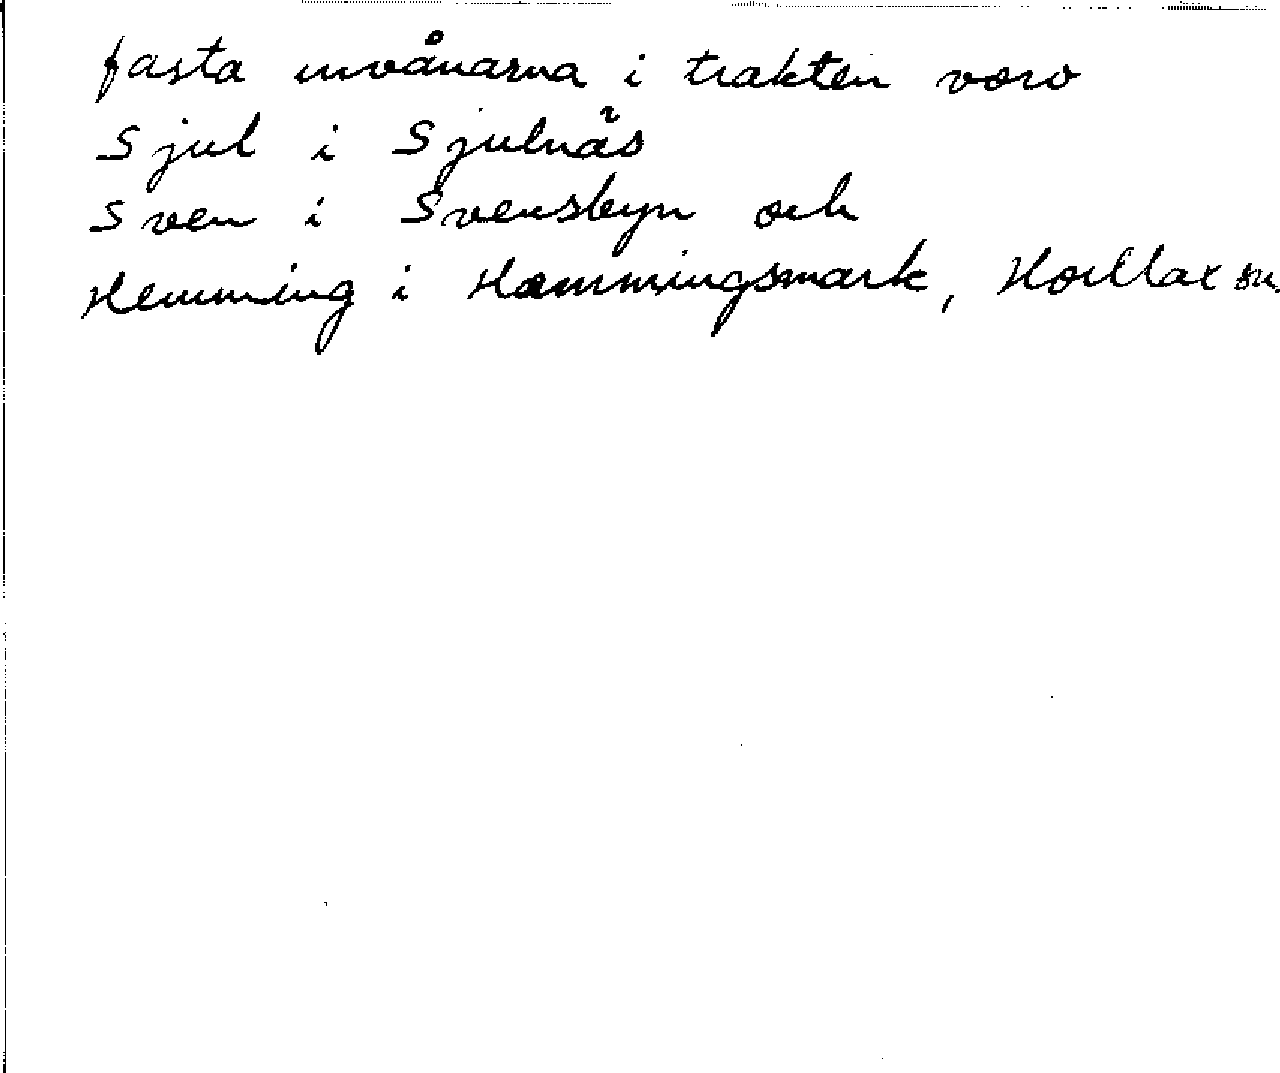 fasta invånarna i trakten voro
Sjul i Sjulnäs
Sven i Svensbyn och
Hemming i Hemmingsmark, Hortlax sn.